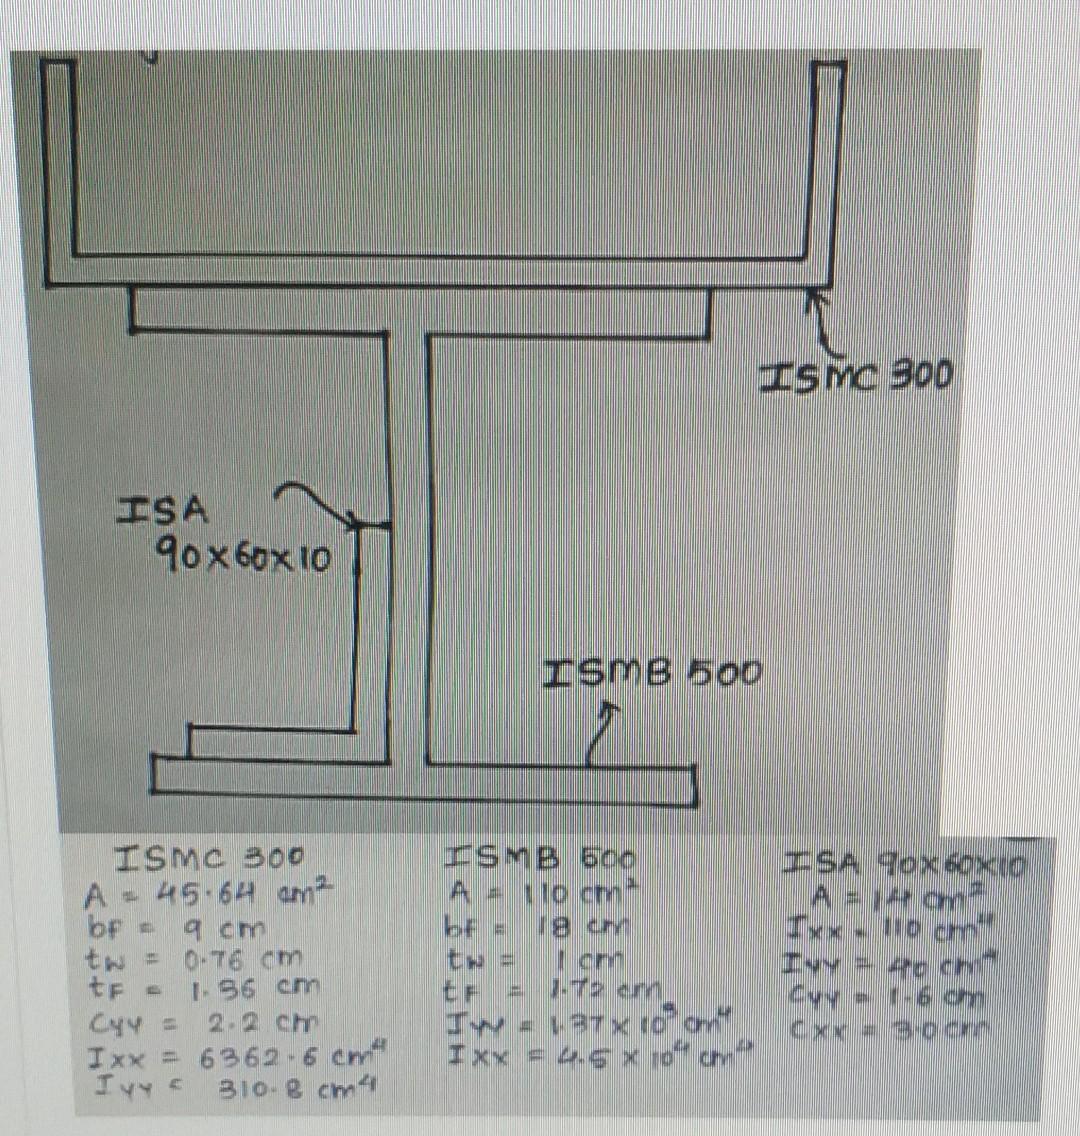 ISMC 300
ISA
90x60x10
ISMB 500
ISMC 300
A = 45.64 cm²
bF = 9 cm
tw = 0.76 cm
tF = 1.36 cm
Cyy = 2.2 cm
Ixx = 6362.6 cm⁴
Iyy = 310.8 cm⁴
ISMB 500
A = 110 cm²
bf = 18 cm
tw = 1 cm
tF = 1.72 cm
= 1.37 x 10³ cm⁴
Ixx = 4.5 x 10⁴ cm⁴
ISA 90x60x10
A = 14 cm²
Ixx = 110 cm⁴
Iyy = 40 cm⁴
Cyy = 1.6 cm
Cxx = 3.0 cm